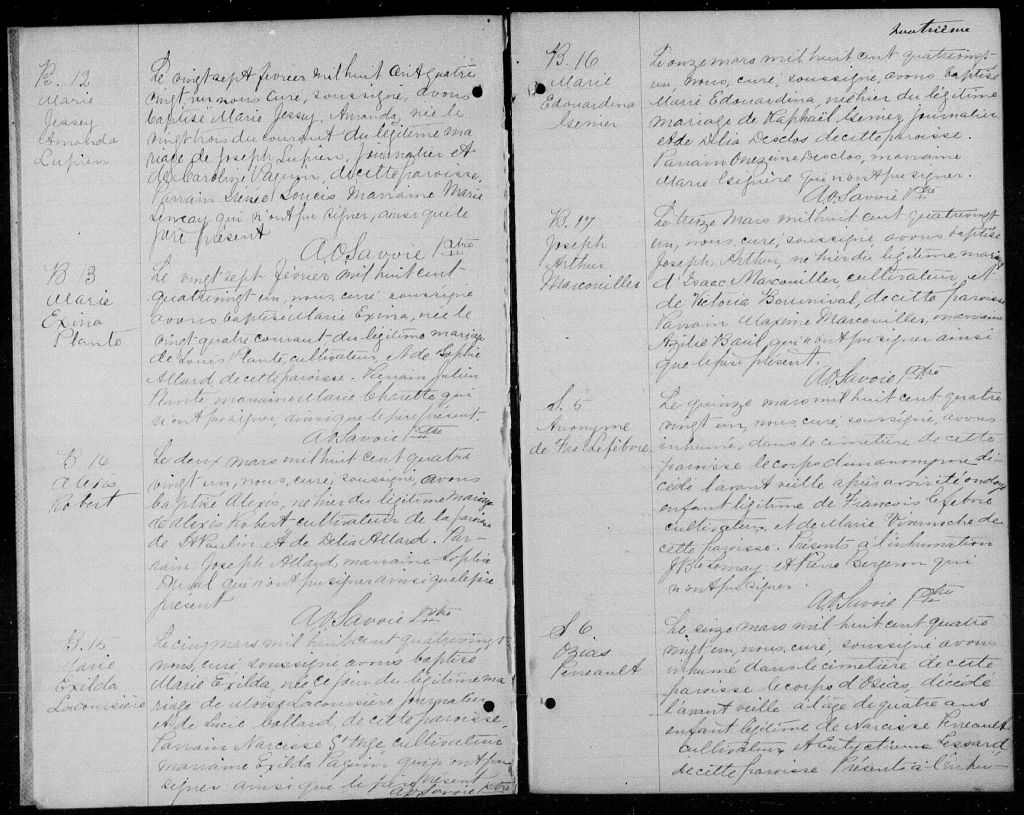 B. 12
Marie
Jessey
Amanda
Lupien
Le vingt sept février mil huit cent quatre
vingt un nous curé, soussigné, avons
baptisé Marie Jessey, Amanda, née le
vingt trois du courant du légitime ma
riage de Joseph Lupien, Journalier et
de Caroline Paquin, de cette paroisse,
Parrain Marraine Marie
qui n'ont pu signer, ainsi que le
père présent
A. O. Savoie Ptre
B 13
Marie
Exina
Plante
Le vingt sept février mil huit cent
quatrevingt un, nous, curé, soussigné
avons baptisé Marie Exina, née le
vingt quatre courant du légitime mariage
de Louis Plante, cultivateur, et de Sophie
Allard, de cette paroisse. Parrain Julien
Plante marraine Marie qui
n'ont pu signer, ainsi que le père présent.
A. O. Savoie Ptre
B 14
Alexis
Robert
Le deux mars mil huit cent quatre
vingt un, nous, curé, soussigné, avons
baptisé Alexis, né hier du légitime mariage
de Alexis Robert cultivateur de la paroisse
de St Paulin et de Délia Allard. Par-
rain Joseph Allard, marraine Sophie
Duval qui n'ont pu signer ainsi que le père
présent
A. O. Savoie Ptre
B. 15
Marie
Exilda
Lacoursière
Le cinq mars mil huit cent quatrevingt
nous, curé soussigné avons baptisé
Marie Exilda, née ce jour du légitime ma
riage de Lacoursière journalier
et de Lucie de cette paroisse.
Parrain Narcisse St Ange cultivateur
marraine Exilda Paquin qui n'ont pu
signer ainsi que le père présent
A. O. Savoie Ptre
Quatrième
B. 16
Marie
Edouardina
Le onze mars mil huit cent quatrevingt-
un, nous, curé, soussigné, avons baptisé
Marie Edouardina, née hier du légitime
mariage de Raphaël journalier
et de Délia Desclos de cette paroisse.
Parrain Onésime Desclos, marraine
Marie qui n'ont pu signer.
A. O. Savoie Ptre
B. 17
Joseph
Arthur
Marcouiller
Le treize mars mil huit cent quatrevingt
un, nous, curé, soussigné, avons baptisé
Joseph Arthur, né hier du légitime mariage
d'Isaac Marcouiller, cultivateur, et
de Victoria Bournival, de cette paroisse
Parrain Maxime Marcouiller, marraine
Baril, qui n'ont pu signer ainsi
que le père présent.
A. O. Savoie Ptre
S. 5
Anonyme
de Frs. Lefebvre
Le quinze mars mil huit cent quatre
vingt un, nous, curé, soussigné, avons
inhumé, dans le cimetière de cette
paroisse le corps d'un anonyme dé-
cédé l'avant veille après avoir été ondoyé
enfant légitime de François Lefebvre
cultivateur, et de Marie de
cette paroisse. Présents à l'inhumation
J. Bte et Pierre Bergeron qui
n'ont pu signer.
A. O. Savoie Ptre
S 6
Ozias
Perreault
Le seize mars mil huit cent quatre
vingt un, nous, curé, soussigné avons
inhumé dans le cimetière de cette
paroisse le corps d'Osias, décédé
l'avant veille à l'âge de quatre ans
enfant légitime de Narcisse Perreault
cultivateur et Lessard,
de cette paroisse Présents à l'inhu-